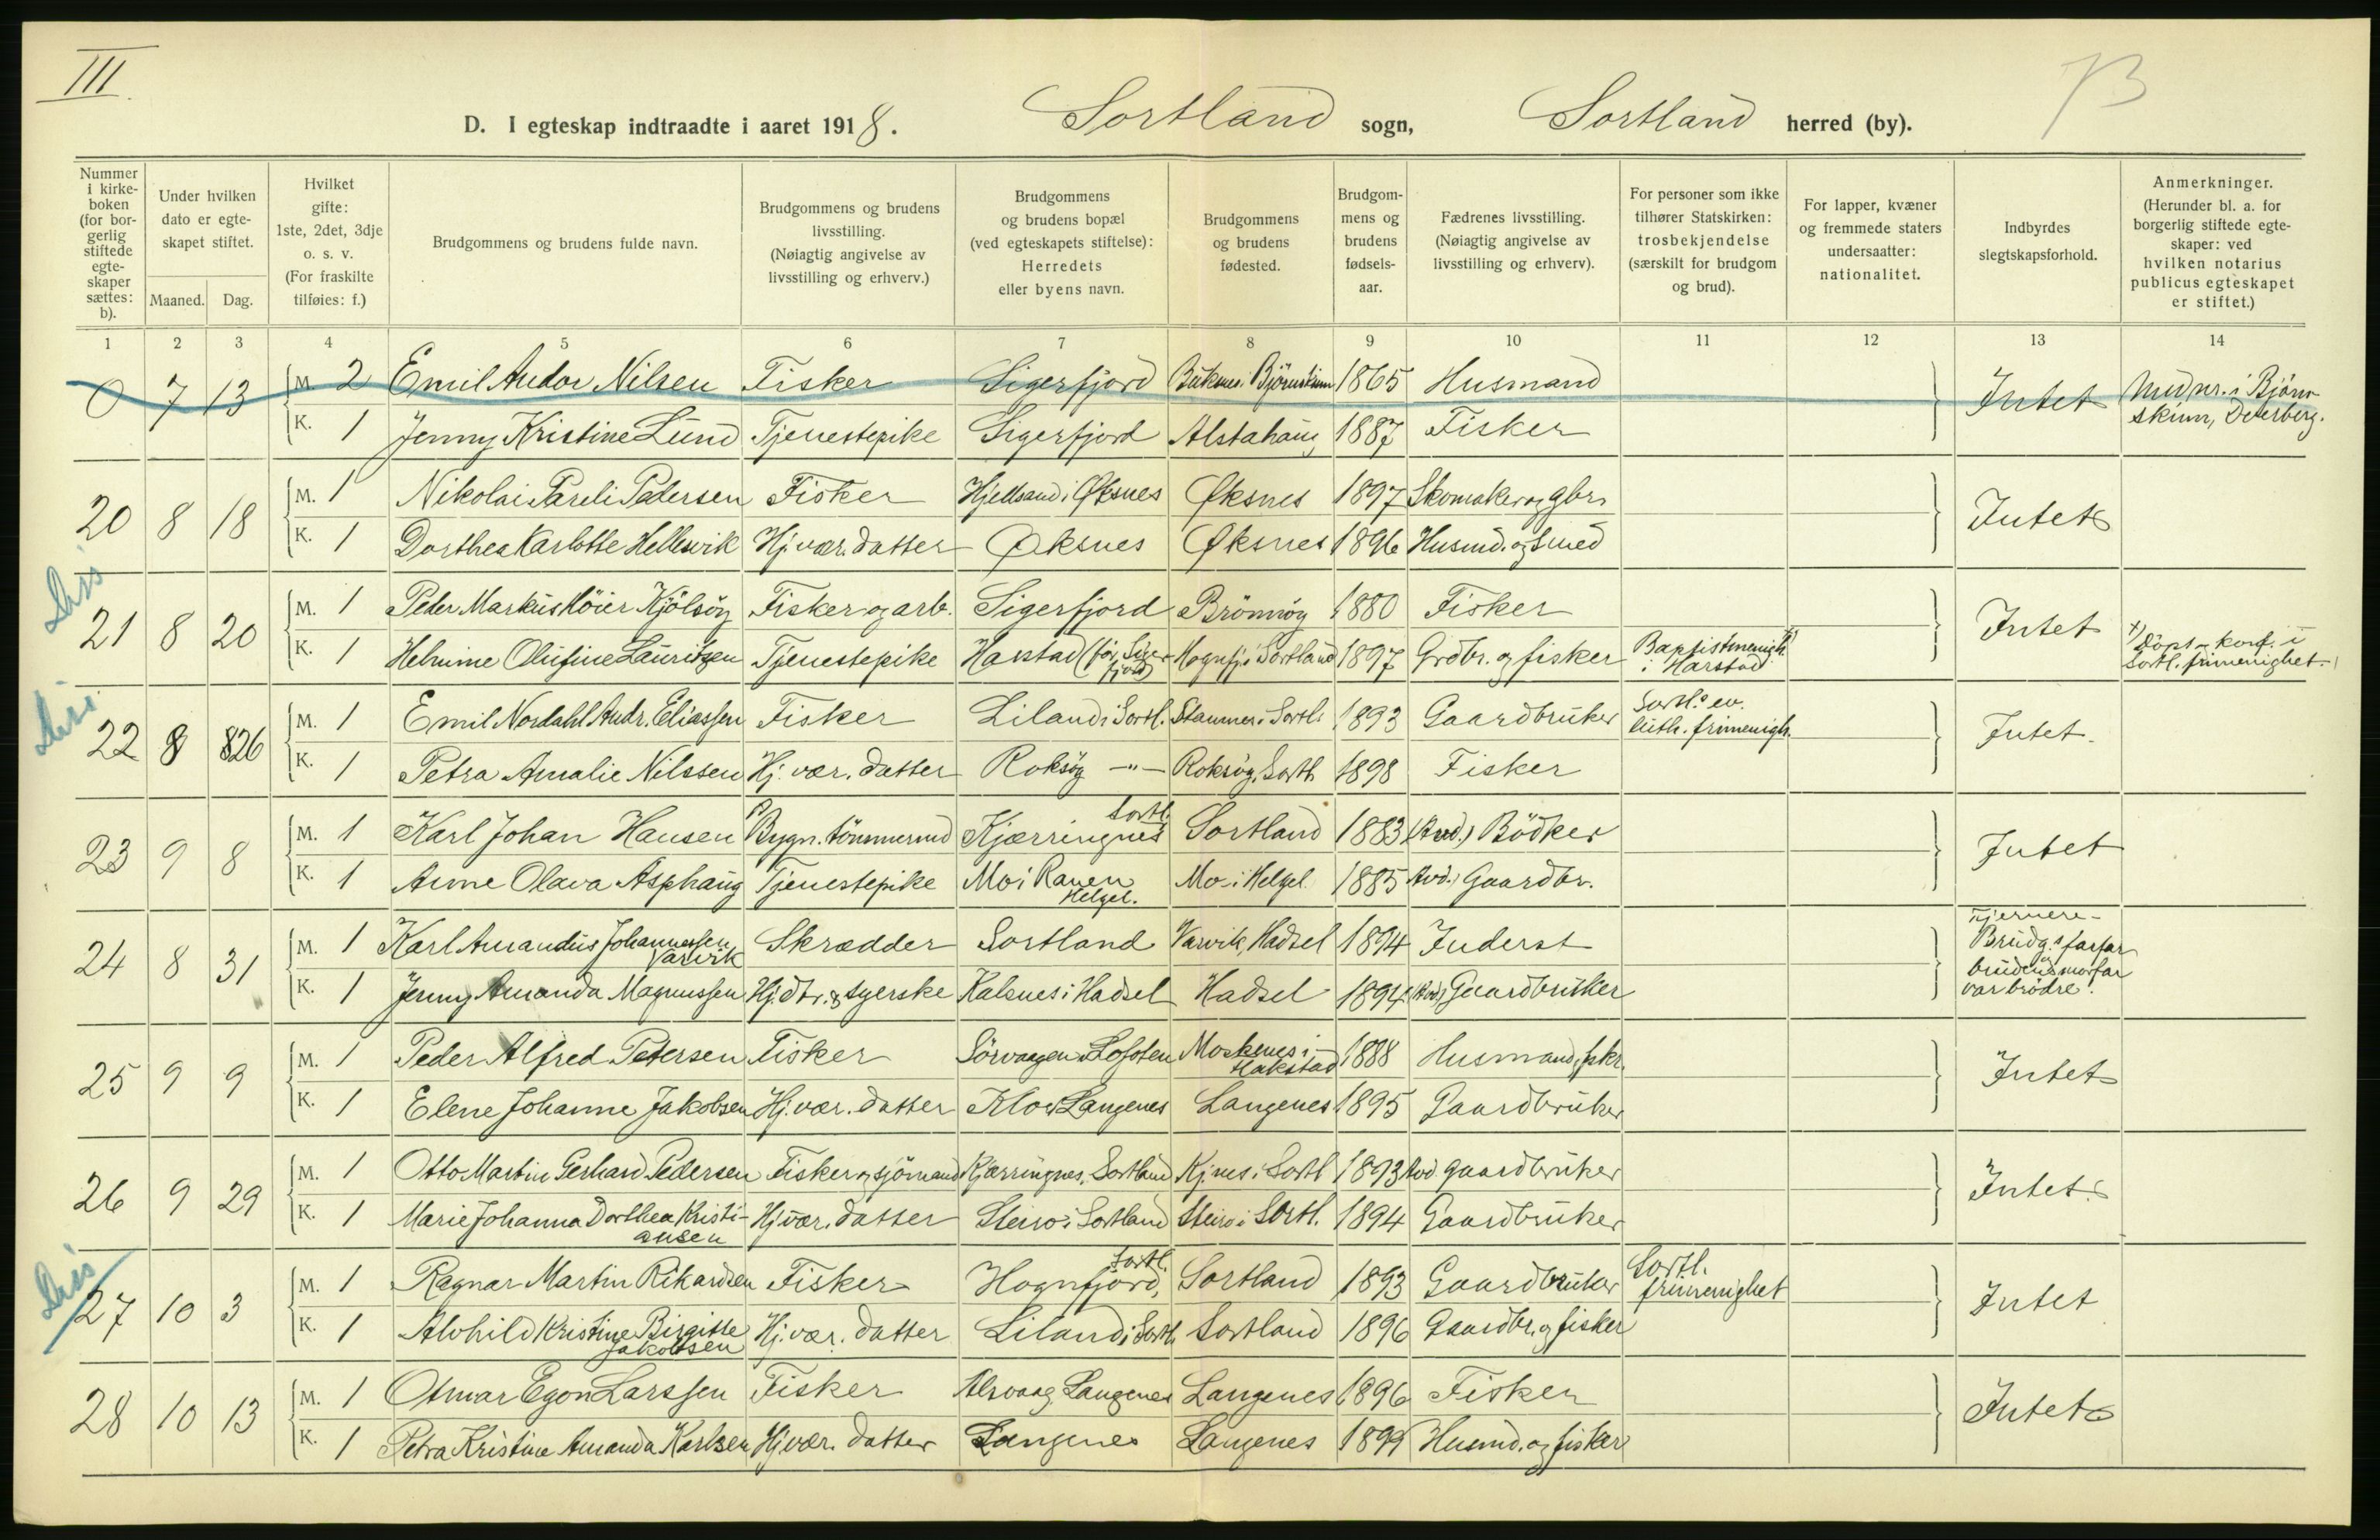 III
D. I egteskap indtraadte i aaret 1918. Sortland sogn, Sortland herred (by).
Nummer i kirkeboken (for borgerlig stiftede egteskaper sættes: b).
Under hvilken dato er egteskapet stiftet.
Maaned. Dag.
Hvilket gifte: 1ste, 2det, 3dje o. s. v. (For fraskilte tilføies: f.)
Brudgommens og brudens fulde navn.
Brudgommens og brudens livsstilling. (Nøiagtig angivelse av livsstilling og erhverv.)
Brudgommens og brudens bopæl (ved egteskapets stiftelse): Herredets eller byens navn.
Brudgommens og brudens fødested.
Brudgommens og brudens fødselsaar.
Fædrenes livsstilling. (Nøiagtig angivelse av livsstilling og erhverv).
For personer som ikke tilhører Statskirken: trosbekjendelse (særskilt for brudgom og brud).
For lapper, kvæner og fremmede staters undersaatter: nationalitet.
Indbyrdes slegtskapsforhold.
Anmerkninger. (Herunder bl. a. for borgerlig stiftede egteskaper: ved hvilken notarius publicus egteskapet er stiftet.)
1 2 3 4 5 6 7 8 9 10 11 12 13 14
0 7 13 M. 2 Emil Andor Nilsen Fisker Sigerfjord Buksnes i Bjørnskinn 1865 Husmand Intet i Bjørnskinn,
K. 1 Jenny Kristine Lund Tjenestepike Sigerfjord Alstahaug 1887 Fisker
20 8 18 M. 1 Nikolai Pareli Pedersen Fisker Hjellsand i Øksnes Øksnes 1897 Skomaker og gbr. Intet
K. 1 Dorthea Karlotte Hellesvik Hj. vær. datter Øksnes Øksnes 1896 Husmd. og smed
21 8 20 M. 1 Peder Markus Höier Kjölsöy Fisker og arb. Sigerfjord Brönnöy 1880 Fisker Intet
K. 1 Helmine Olufine Lauritzen Tjenestepike Harstad (før Sigerfjord) Hognfj. i Sortland 1897 Grdbr. og fisker Baptistmenigh. i Harstad x) Döpt - konf. i Sortl. frimenighet.
22 8 26 M. 1 Emil Nordahl Andr. Eliassen Fisker Liland i Sortl. Stamnes i Sortl. 1893 Gaardbruker Sortl.s ev. luth. frimenigh. Intet.
K. 1 Petra Amalie Nilssen Hj. vær. datter Roksöy -"- Roksöy, Sortl. 1898 Fisker
23 9 8 M. 1 Karl Johan Hansen Bygn. tömmermd Kjærringnes Sortl. Sortland 1883 (Avd.) Bödker Intet
K. 1 Anne Olava Asphaug Tjenestepike Mo i Ranen Helgel. Mo i Helgel. 1885 Avd. Gaardbr.
24 8 31 M. 1 Karl Amandus Johannessen Varvik Skrædder Sortland Varvik, Hadsel 1894 Inderst Fjernere - Brudg.s farfar og brudens morfar var brödre.
K. 1 Jenny Amanda Magnussen Hj. dtr. & syerske Kalsnes i Hadsel Hadsel 1894 (Avd.) Gaardbruker
25 9 9 M. 1 Peder Alfred Petersen Fisker Sörvaagen i Lofoten Moskenes i Hakstad 1888 Husmand, fskr. Intet
K. 1 Elene Johanne Jakobsen Hj. vær. datter Klo i Langenes Langenes 1895 Gaardbruker
26 9 29 M. 1 Otto Martin Gerhard Pedersen Fisker og sjömand Kjærringnes, Sortland Kj.nes i Sortl 1893 Avd gaardbruker Intet.
K. 1 Marie Johanna Dorthea Kristiansen Hj. vær. datter Steiro i Sortland Steiro i Sortl. 1894 Gaardbruker
27 10 3 M. 1 Ragnar Martin Rikardsen Fisker Hognfjord, Sortl. Sortland 1893 Gaardbruker Sortl. frimenighet Intet
K. 1 Alvhild Kristine Birgitte Jakobsen Hj. vær. datter Liland i Sortl. Sortland 1896 Gaardbr. og fisker
28 10 13 M. 1 Otmar Egon Larssen Fisker Alsvaag, Langenes Langenes 1896 Fisker Intet
K. 1 Petra Kristine Amanda Karlsen Hj. vær. datter Langenes Langenes 1899 Husmd. og fisker